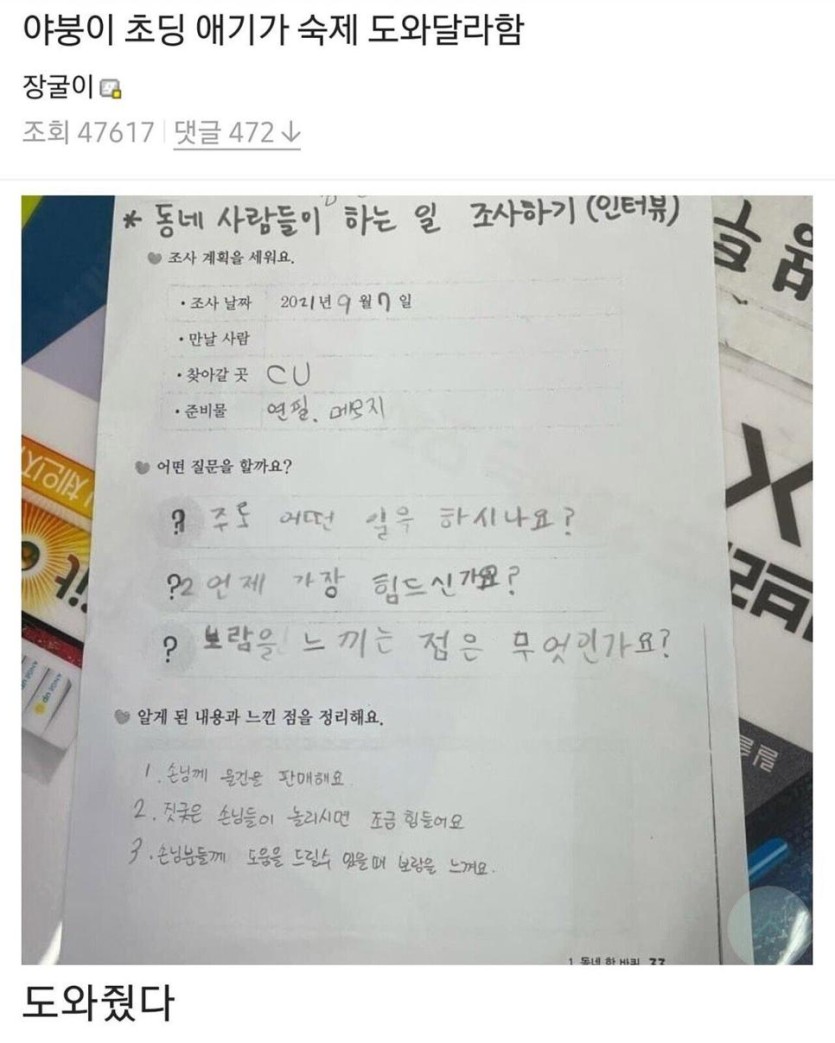 야붕이 초딩 애기가 숙제 도와달라함
장굴이
조회 47617 댓글 472
* 동네 사람들이 하는 일 조사하기 (인터뷰)
조사 계획을 세워요.
• 조사 날짜 2021년 9월 7일
• 만날 사람
• 찾아갈 곳 CU
• 준비물 연필, 메모지
어떤 질문을 할까요?
? 주로 어떤 일을 하시나요?
?2 언제 가장 힘드신가요?
? 보람을 느끼는 점은 무엇인가요?
알게 된 내용과 느낀 점을 정리해요.
1. 손님께 물건을 판매해요
2. 짓궂은 손님들이 놀리시면 조금 힘들어요
3. 손님분들께 도움을 드릴수 있을때 보람을 느껴요.
1 동네 한 바퀴 37
도와줬다